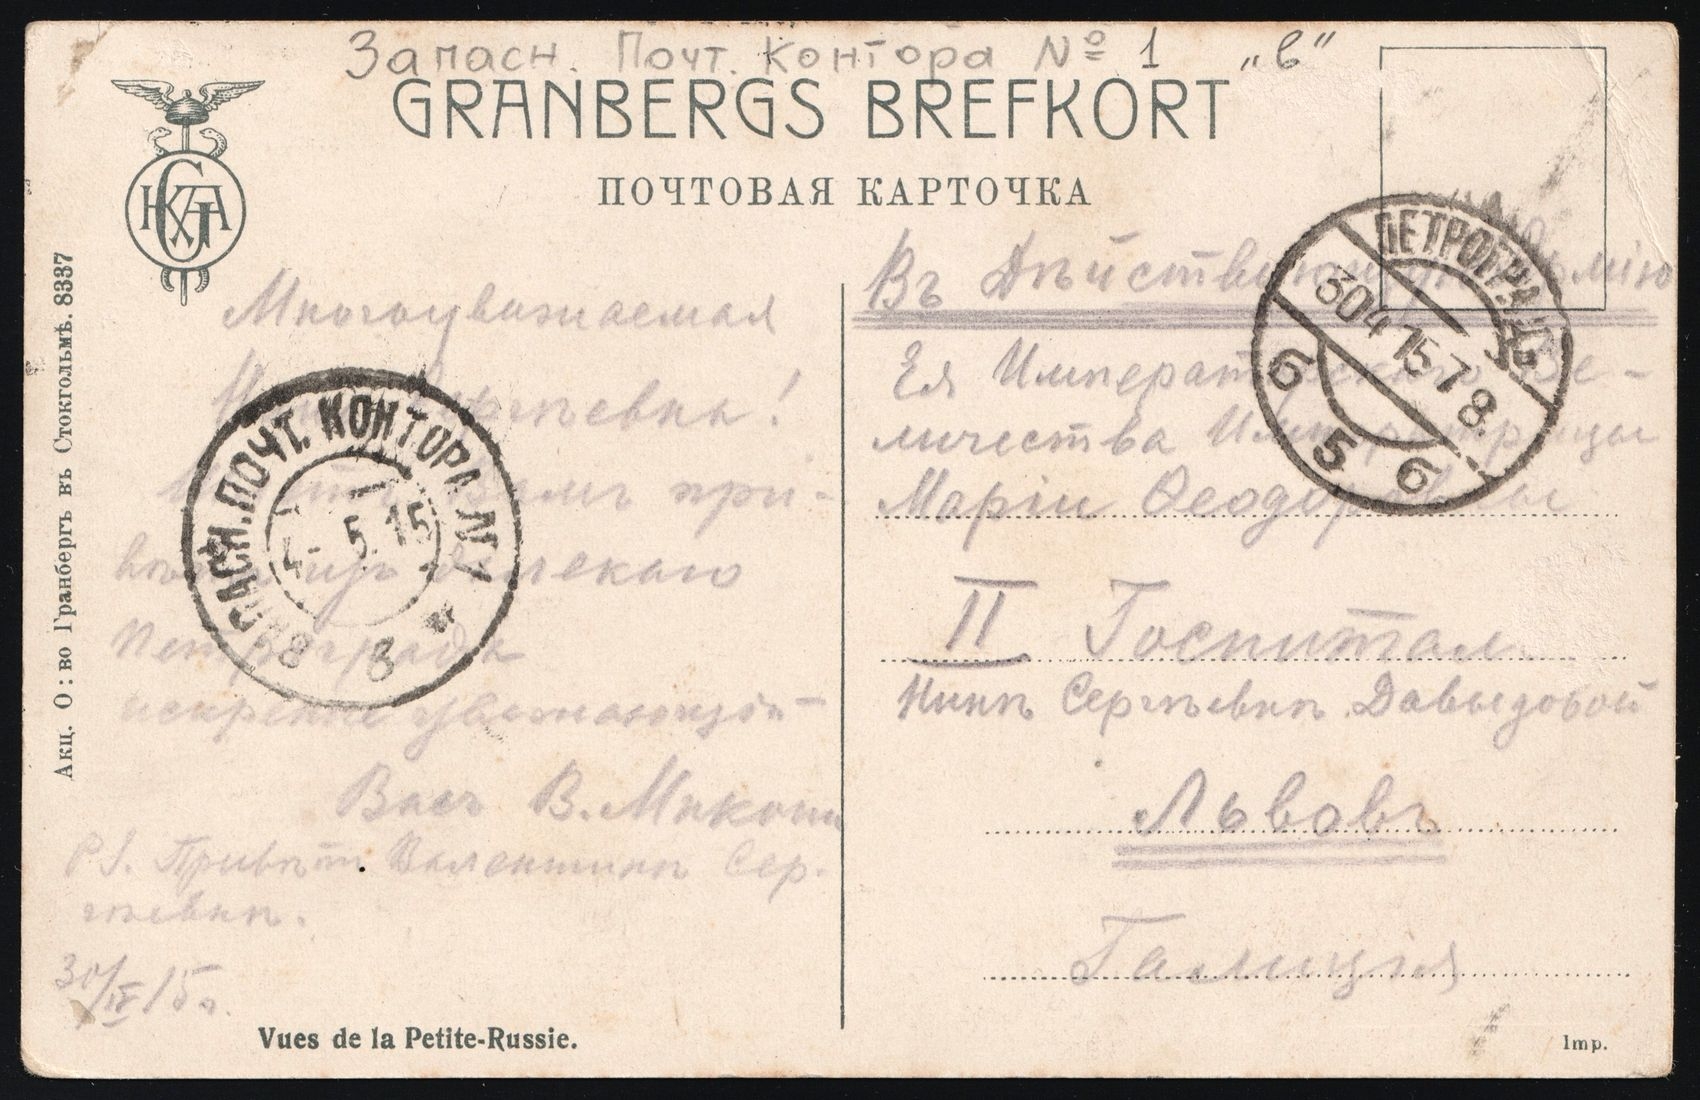 Запасн. Почт. Контора № 1 „в"
GRANBERGS BREFKORT
ПОЧТОВАЯ КАРТОЧКА
Акц. О:во Гранбергъ въ Стокгольмѣ. 8337
Многоуважаемая
Нина Сергѣевна!
Вамъ при-
вѣтъ изъ далекаго
Петрограда
искренне уважающій
Васъ В.
P.S. Привѣтъ Валентинѣ Сер-
гѣевнѣ.
30/IV 15 г.
ЗАПАСН. ПОЧТ. КОНТОРА №1
4- 5. 15
В
Vues de la Petite-Russie.
ПЕТРОГРАДЪ
30 4 15 7 8
6 5 6
Въ Дѣйствующую Армію
Ея Императорскаго Ве-
личества Императрицы
Маріи Ѳеодоровны
II Госпиталь
Нинѣ Сергѣевнѣ Давыдовой
Львовъ
Галиція
Imp.